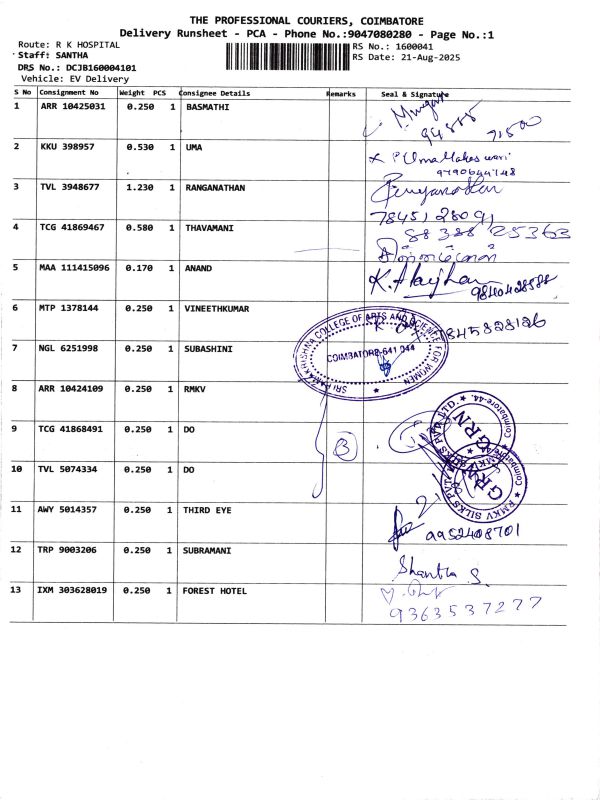 THE PROFESSIONAL COURIERS, COIMBATORE
Delivery Runsheet - PCA - Phone No.:9047080280 - Page No.:1
Route: R K HOSPITAL
RS No.: 1600041
Staff: SANTHA
RS Date: 21-Aug-2025
DRS No.: DCJB160004101
Vehicle: EV Delivery
S No Consignment No Weight PCS Consignee Details Remarks Seal & Signature
1 ARR 10425031 0.250 1 BASMATHI
2 KKU 398957 0.530 1 UMA
P Uma Maheswari
3 TVL 3948677 1.230 1 RANGANATHAN
7845128091
4 TCG 41869467 0.580 1 THAVAMANI
88388 25363
5 MAA 111415096 0.170 1 ANAND
9840428588
6 MTP 1378144 0.250 1 VINEETHKUMAR
9845828126
7 NGL 6251998 0.250 1 SUBASHINI
SRI RAMAKRISHNA COLLEGE OF ARTS AND SCIENCE FOR WOMEN
COIMBATORE-641 044
8 ARR 10424109 0.250 1 RMKV
9 TCG 41868491 0.250 1 DO
3
RMKV SILKS PVT. LTD. Coimbatore-44.
GRN
10 TVL 5074334 0.250 1 DO
RMKV SILKS PVT. LTD. Coimbatore-44.
GRN
11 AWY 5014357 0.250 1 THIRD EYE
9952408701
12 TRP 9003206 0.250 1 SUBRAMANI
Shantha S.
13 IXM 303628019 0.250 1 FOREST HOTEL
9363537277